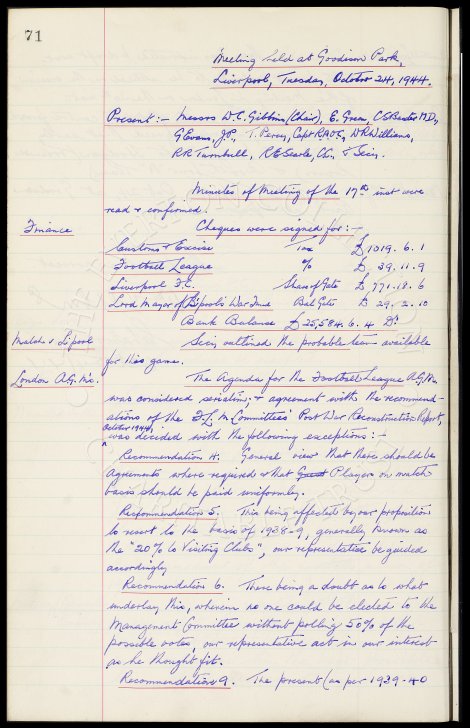 71
Meeting held at Goodison Park,
Liverpool, Tuesday, October 24, 1944.
Present :- Messrs W.C. Gibbins (Chair), E. Green, C.S. Baxter M.D.,
G. Evans, J.P., T. Percy, Capt. R.A.O.C., W.R. Williams,
R.R. Turnbull, R.E. Searle, CC. & Secy.
Minutes of Meeting of the 17th inst were
read & confirmed.
Finance
Cheques were signed for :-
Customs & Excise Tax £1019. 6. 1
Football League % £ 39. 11. 9
Liverpool F.C. Share of Gate £ 771. 18. 6
Lord Mayor of L'pool's War Fund Bal Gate £ 29. 2. 10
Bank Balance £25,584. 6. 4 Dr.
Match v L'pool
Secy outlined the probable team available
for this game.
London A.G. M's.
The Agenda for the Football League A.G.M.
was considered seriatim & agreement with the recommend-
ations of the F.L. M. Committees' Post War Reconstruction Report,
October 1944,
was decided with the following exceptions :-
Recommendation 4. General view that there should be
Agreements where required & that Player on match
basis should be paid uniformly.
Recommendation 5. This being affected by our proposition
to resort to the basis of 1938-9, generally known as
the "20% to Visiting Clubs", our representative be guided
accordingly
Recommendation 6. There being a doubt as to what
underlay this, wherein no one could be elected to the
Management Committee without polling 50% of the
possible votes, our representative act in our interest
as he thought fit.
Recommendation 9. The present (as per 1939-40